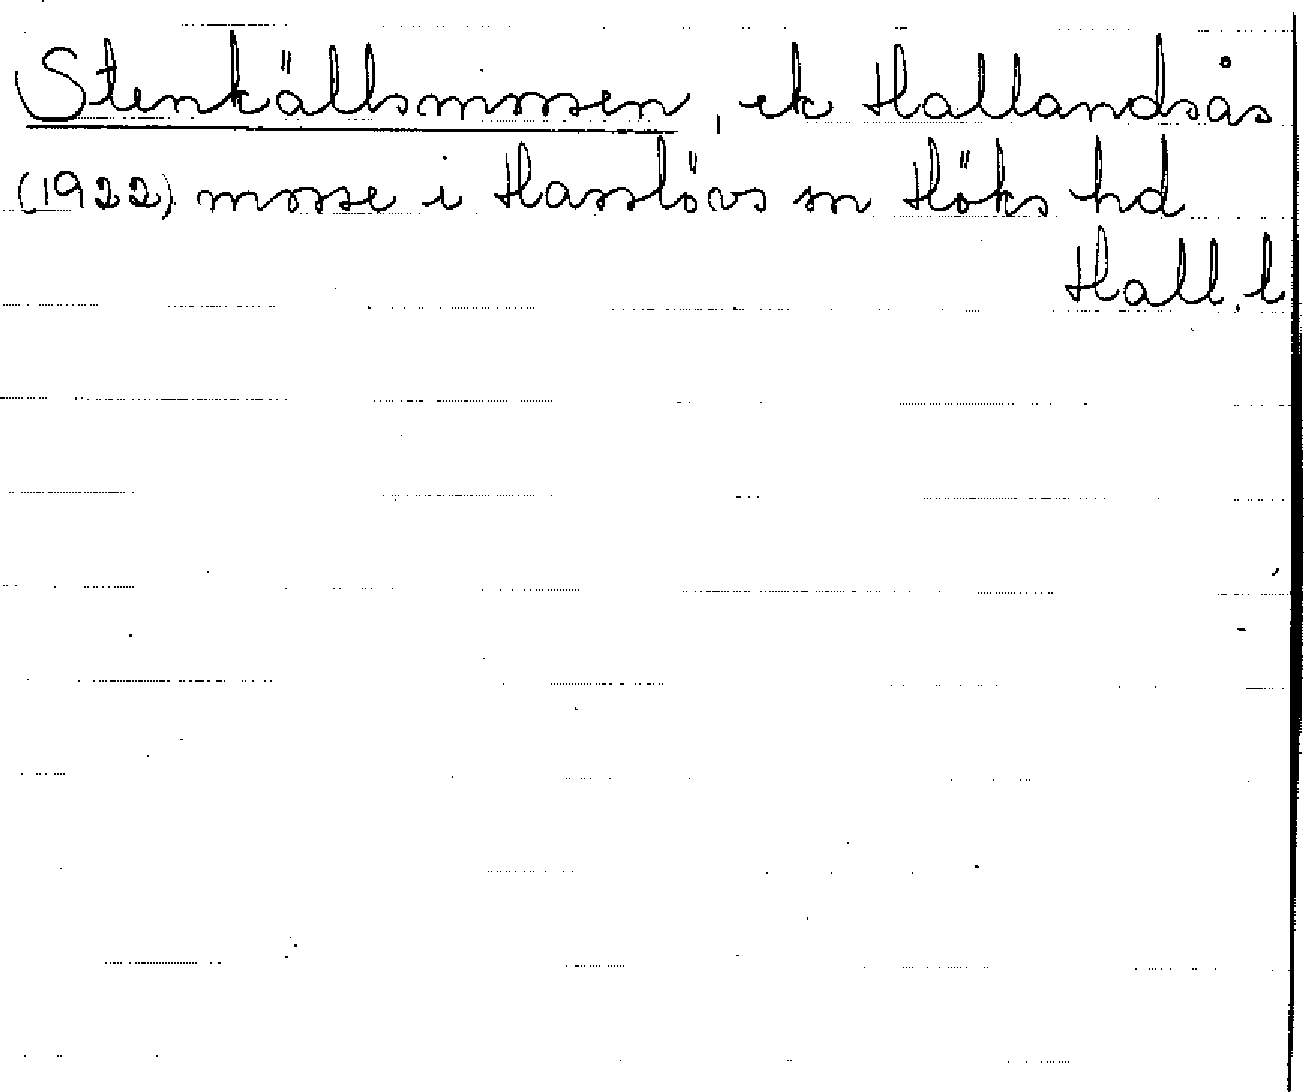 Stenkällsmossen, ek Hallandsås
(1922) mosse i Hasslövs sn Höks hd
Hall. l